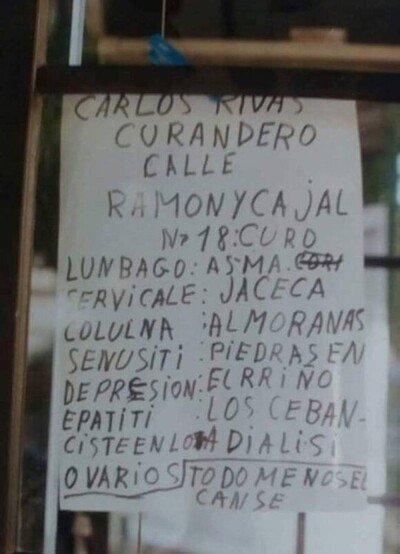 CARLOS RIVAS
CURANDERO
CALLE
RAMONYCAJAL
Nº 18:CURO
LUNBAGO: ASMA.
SERVICALE: JACECA
COLULNA :ALMORANAS
SENUSITI :PIEDRAS EN
DEPRESION:ELRRIÑO
EPATITI :LOS CEBAN-
CISTEENLO A DIALISI
OVARIOS TODO MENOSEL
CANSE